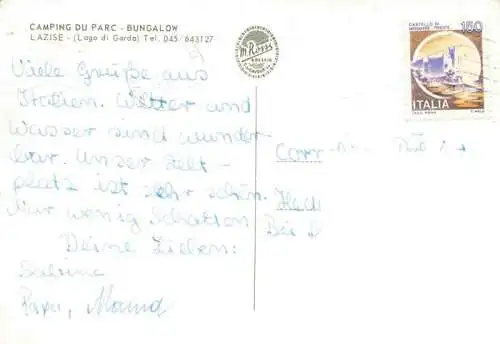 CAMPING DU PARC - BUNGALOW
LAZISE - (Lago di Garda) Tel. 045/643127
Viele Grüße aus
Italien. Wetter und
Wasser sind wunder
bar. Unser Zelt-
platz ist sehr schön.
Nur wenig Schatten
Deine Lieben:
Sabine
Papa, Mama
M. Rossi
CASTELLO DI
MIRAMARE - TRIESTE
150
ITALIA